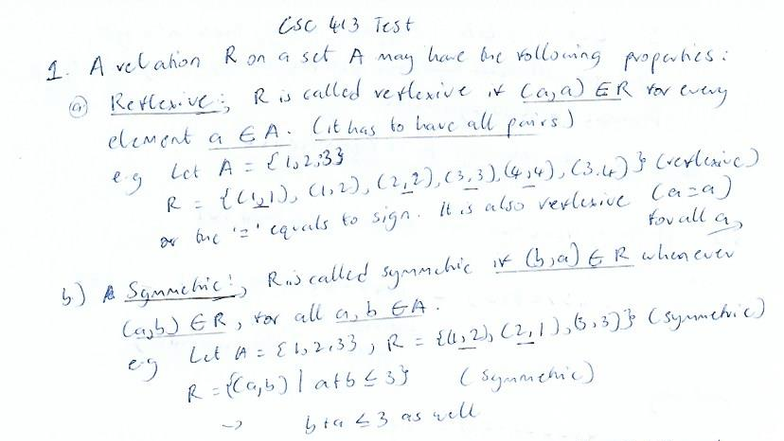 CSC 413 Test
1. A relation R on a set A may have the following properties:
(a) Reflexive: R is called reflexive if (a,a) ∈ R for every
element a ∈ A. (it has to have all pairs)
e.g Let A = {1,2,3}
R = {(1,1), (1,2), (2,2), (3,3), (4,4), (3,4)} (reflexive)
or the '=' equals to sign. It is also reflexive (a=a)
for all a,
b) Symmetric:, R is called symmetric if (b,a) ∈ R whenever
(a,b) ∈ R, for all a, b ∈ A.
e.g Let A = {1,2,3}, R = {(1,2), (2,1), (3,3)} (symmetric)
R = {(a,b) | a+b ≤ 3} (symmetric)
→ b+a ≤ 3 as well